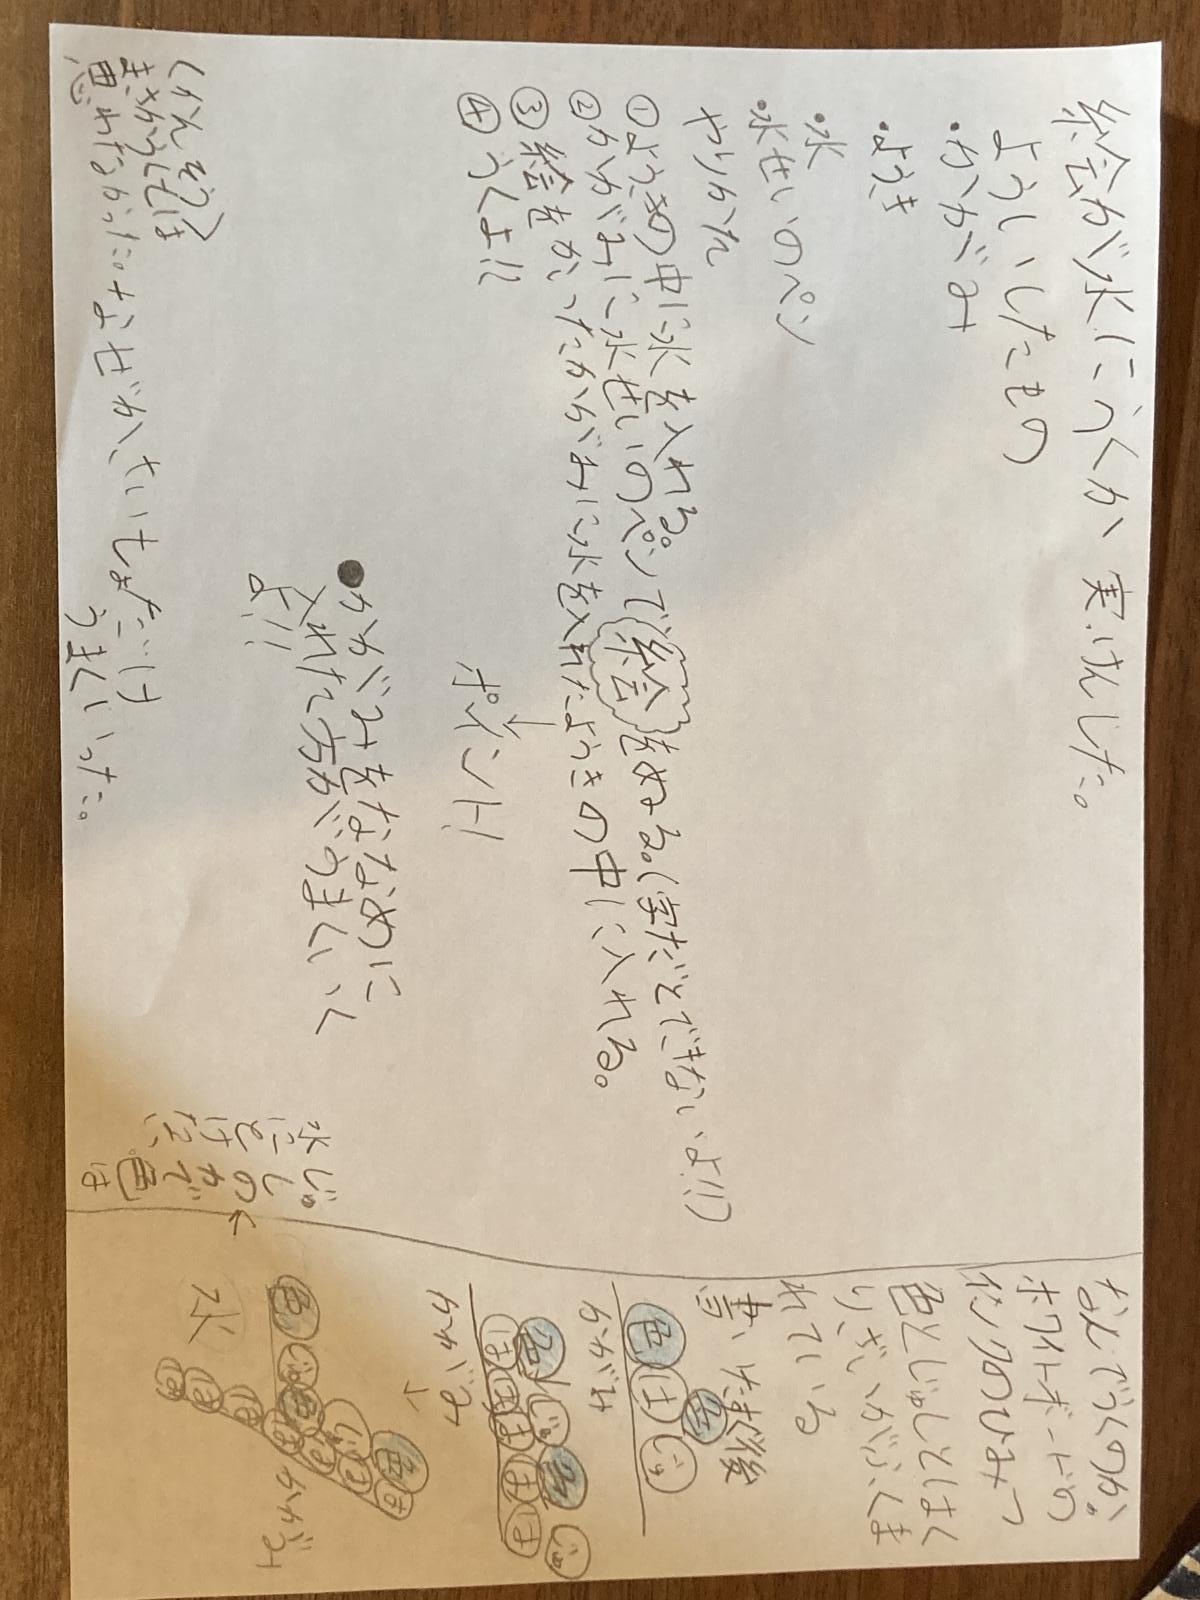 絵が水にうくか 実けんした。
ようい したもの
・かがみ
・ようき
・水
・水せいのペン
やりかた
①ようきの中に水を入れる。
②かがみに水せいのペンで絵をぬる。(字だとできないよ!!)
③絵をかったかがみに水を入れたようきの中に入れる。
④うくよ!!
ポイント!
●かがみをななめに
入れた方がうまくいく
よ!!
くかんそう>
まさかうくとは
思わなかった。
なぜか、さいしょだけ
うまくいった。
なんでうくのか。
ホワイトボードの
ペンのひみつ
色とじゅしとはく
りざいがふくま
れている
書いたすぐ後
色 は 色 じゅ
かがみ
色 じゅ 色 じゅ
は は は は は
かがみ
↓
色 じゅ 色 じゅ 色
は は は は は は
かがみ
水
じゅ
しの
かで
色は
水
にと
けな
い